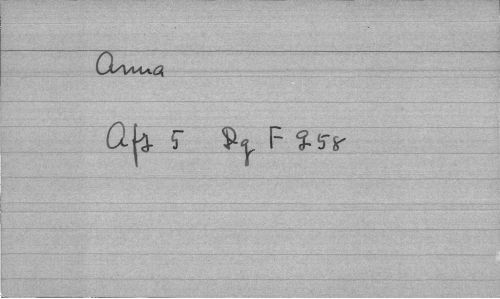 Anna
Afz 5 Dg F 958